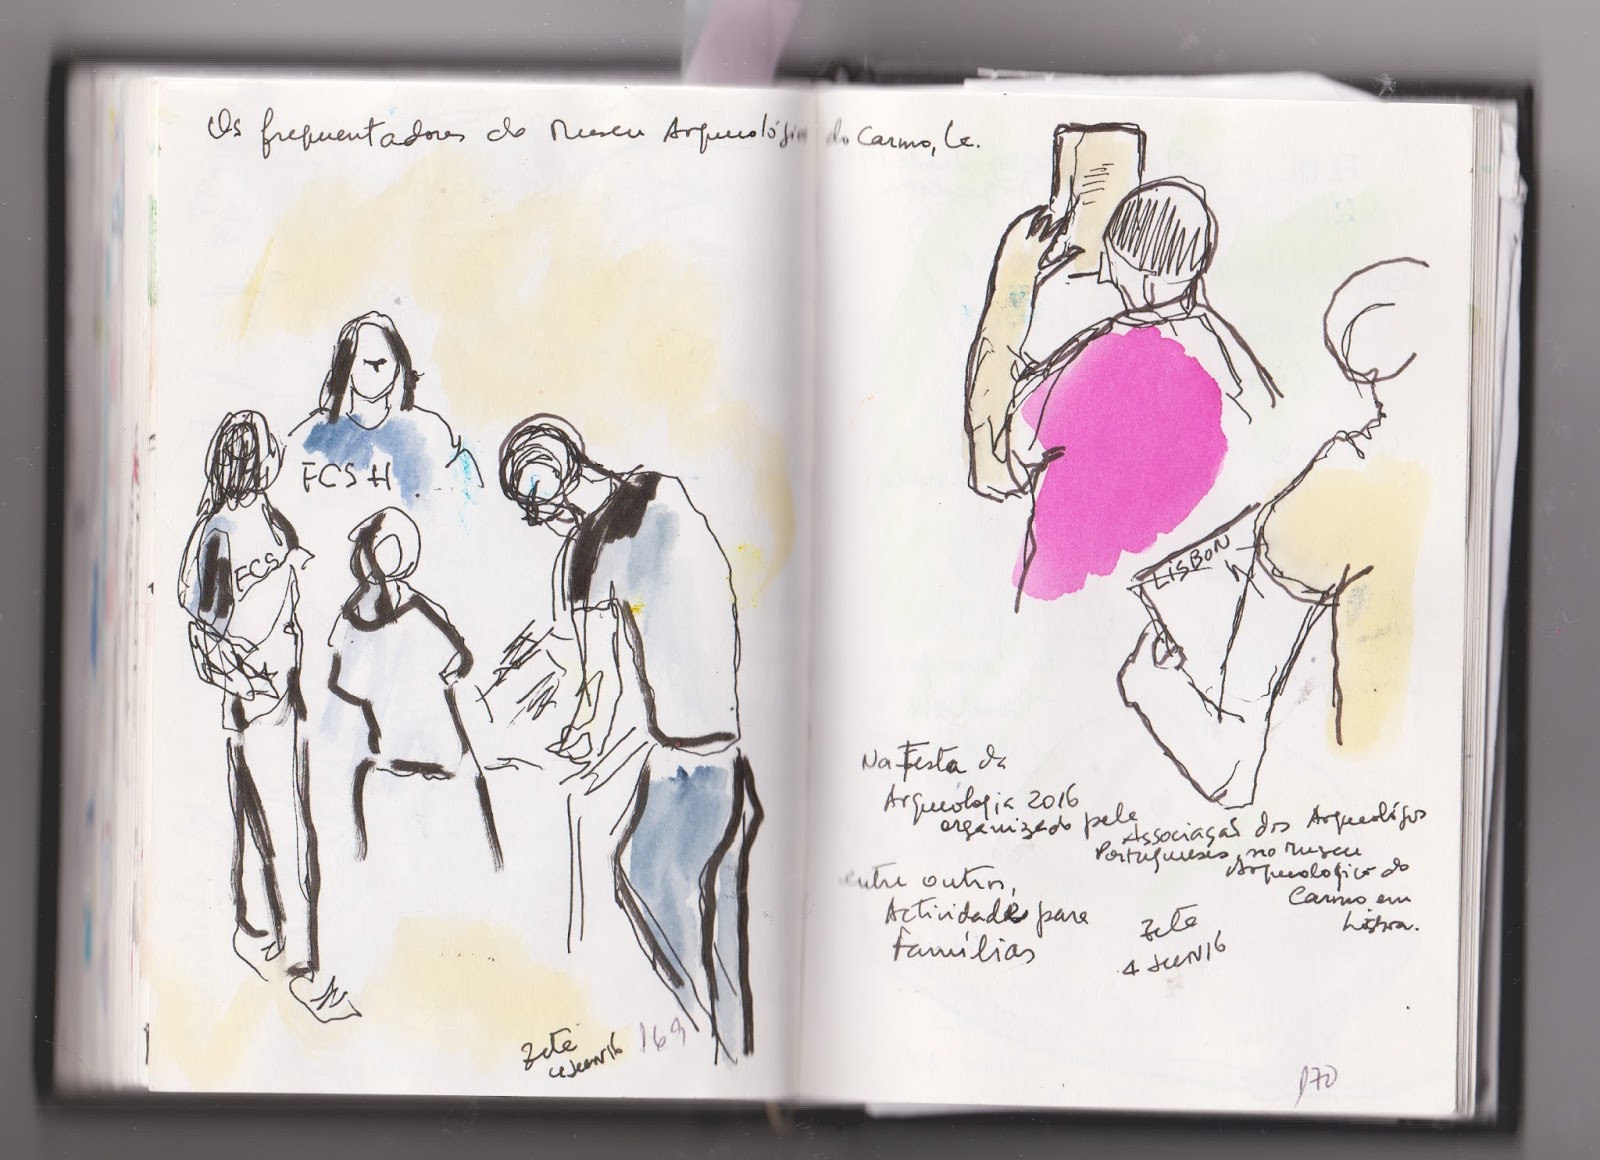 Os frequentadores do Museu Arqueológico do Carmo, Lx.
FCSH
FCS
LISBON
Na Festa da
Arqueologia 2016
organizado pela
Associação dos Arqueólogos
Portugueses, no Museu
Arqueológico do
Carmo em
Lisboa.
entre outros,
Actividades para
Famílias
Zété
4 Jun 16
Zété
4 Jun 16
169
170